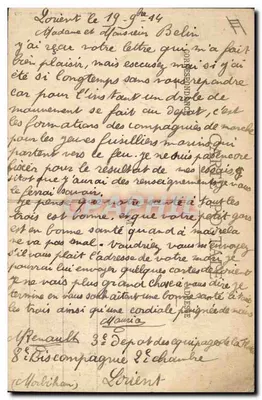 Lorient le 19-9bre 14
Madame et Monsieur Belin
j'ai reçue votre lettre qui m'a fait
bien plaisir, mais escusez moi si j'ai
été si longtemps sans vous reprendre
car pour l'instant un drole de
mouvement se fait au depart, c'est
les formations des compagnies de marche
pour les jeunes fusilliers marins qui
partent vers le feu. Je ne suis pas encore
pour le resultat de mes
que j'aurai des renseignements je vous
le ferai savoir.
Je pense que la santé à tout les
trois est bonne, que votre petit gars
est en bonne santé quand à moi cela
ne va pas mal. Voudriez vous m'envoyez
s'il vous plait l'adresse de votre mari, je
pourrai lui envoyer quelques cartes de Lorient
Je ne vais plus grand chose a vous dire je
termine en vous souhaitant une bonne santé à tous
les trois ainsi qu'une cordiale poignée de mains
Renault 3e depot des equipages de la
3e compagnie 2e chambre
(Morbihan) Lorient
CORRESPONDANCE
ADRESSE